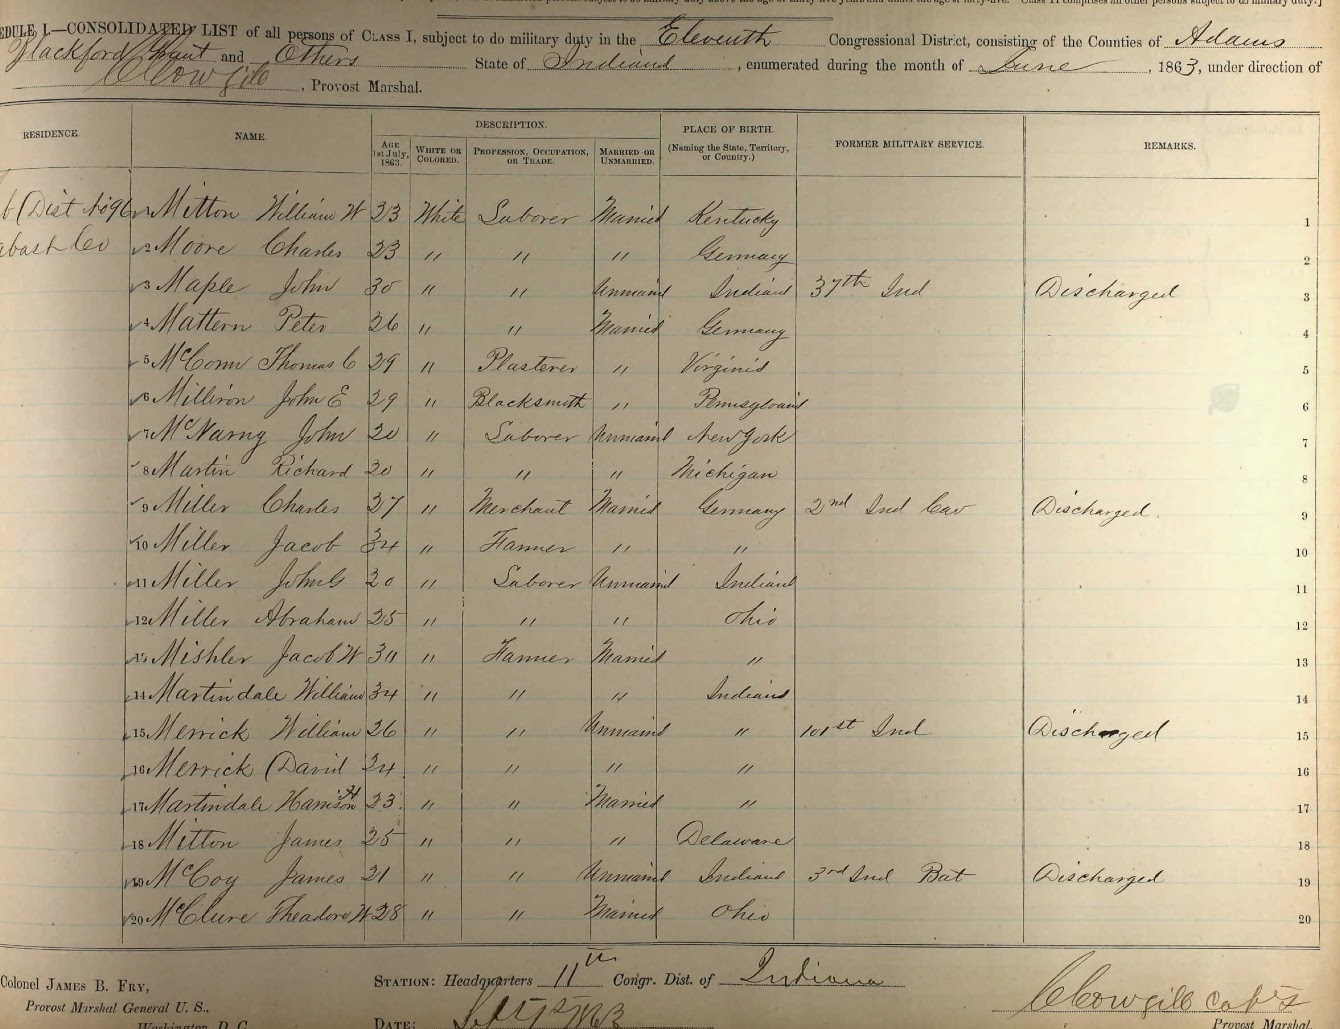 SCHEDULE I.—CONSOLIDATED LIST of all persons of CLASS I, subject to do military duty in the Eleventh Congressional District, consisting of the Counties of Adams
Blackford Grant and Others State of Indiana, enumerated during the month of June, 1863, under direction of
Cowgill, Provost Marshal.
RESIDENCE. NAME. DESCRIPTION. PLACE OF BIRTH. FORMER MILITARY SERVICE. REMARKS.
AGE 1st July, 1863. WHITE OR COLORED. PROFESSION, OCCUPATION, OR TRADE. MARRIED OR UNMARRIED. (Naming the State, Territory, or Country.)
Dist No 96 1 Mitton William W 23 White Laborer Married Kentucky 1
Wabash Co 2 Moore Charles 23 " " " Germany 2
3 Maple John 30 " " Unmarried Indiana 37th Ind Discharged 3
4 Mattern Peter 26 " " Married Germany 4
5 McConn Thomas C 29 " Plasterer " Virginia 5
6 Milliron John E 29 " Blacksmith " Pennsylvania 6
7 McNarny John 20 " Laborer Unmarried New York 7
8 Martin Richard 20 " " " Michigan 8
9 Miller Charles 37 " Merchant Married Germany 2nd Ind Cav Discharged. 9
10 Miller Jacob 34 " Farmer " " 10
11 Miller John G 20 " Laborer Unmarried Indiana 11
12 Miller Abraham 25 " " " Ohio 12
13 Mishler Jacob W 30 " Farmer Married " 13
14 Martindale William 34 " " " Indiana 14
15 Merrick William 26 " " Unmarried " 101st Ind Discharged 15
16 Merrick David 24 " " " " 16
17 Martindale Harrison H 23 " " Married " 17
18 Mitton James 25 " " " Delaware 18
19 McCoy James 21 " " Unmarried Indiana 3rd Ind Bat Discharged 19
20 McClure Theadore W 28 " " Married Ohio 20
Colonel JAMES B. FRY, STATION: Headquarters 11th Congr. Dist. of Indiana
Provost Marshal General U. S., C Cowgill Capt
Washington, D. C. DATE: Sept 1863 Provost Marshal.